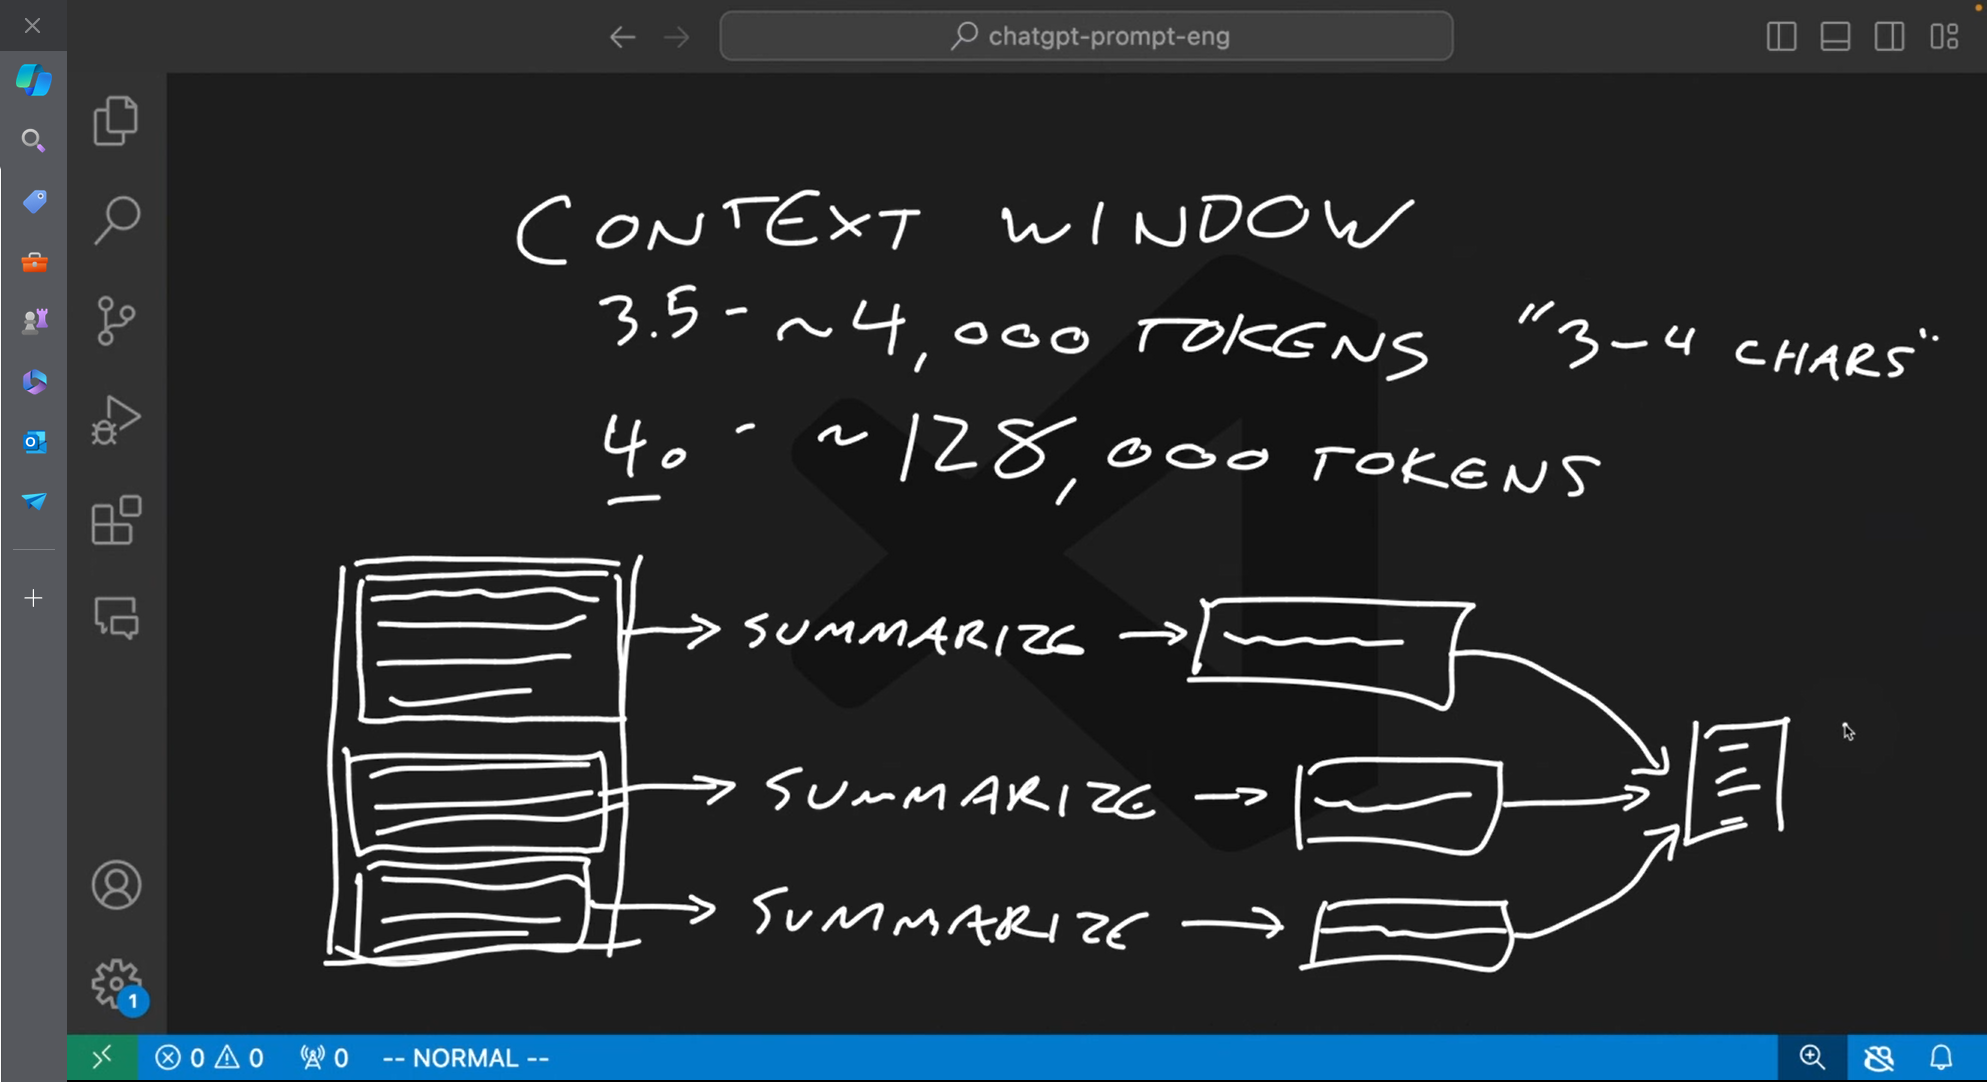 chatgpt-prompt-eng
CONTEXT WINDOW
3.5 - ~4,000 TOKENS "3-4 CHARS"
4o - ~128,000 TOKENS
→ SUMMARIZE →
→ SUMMARIZE →
→ SUMMARIZE →
1
0 0 0 -- NORMAL --